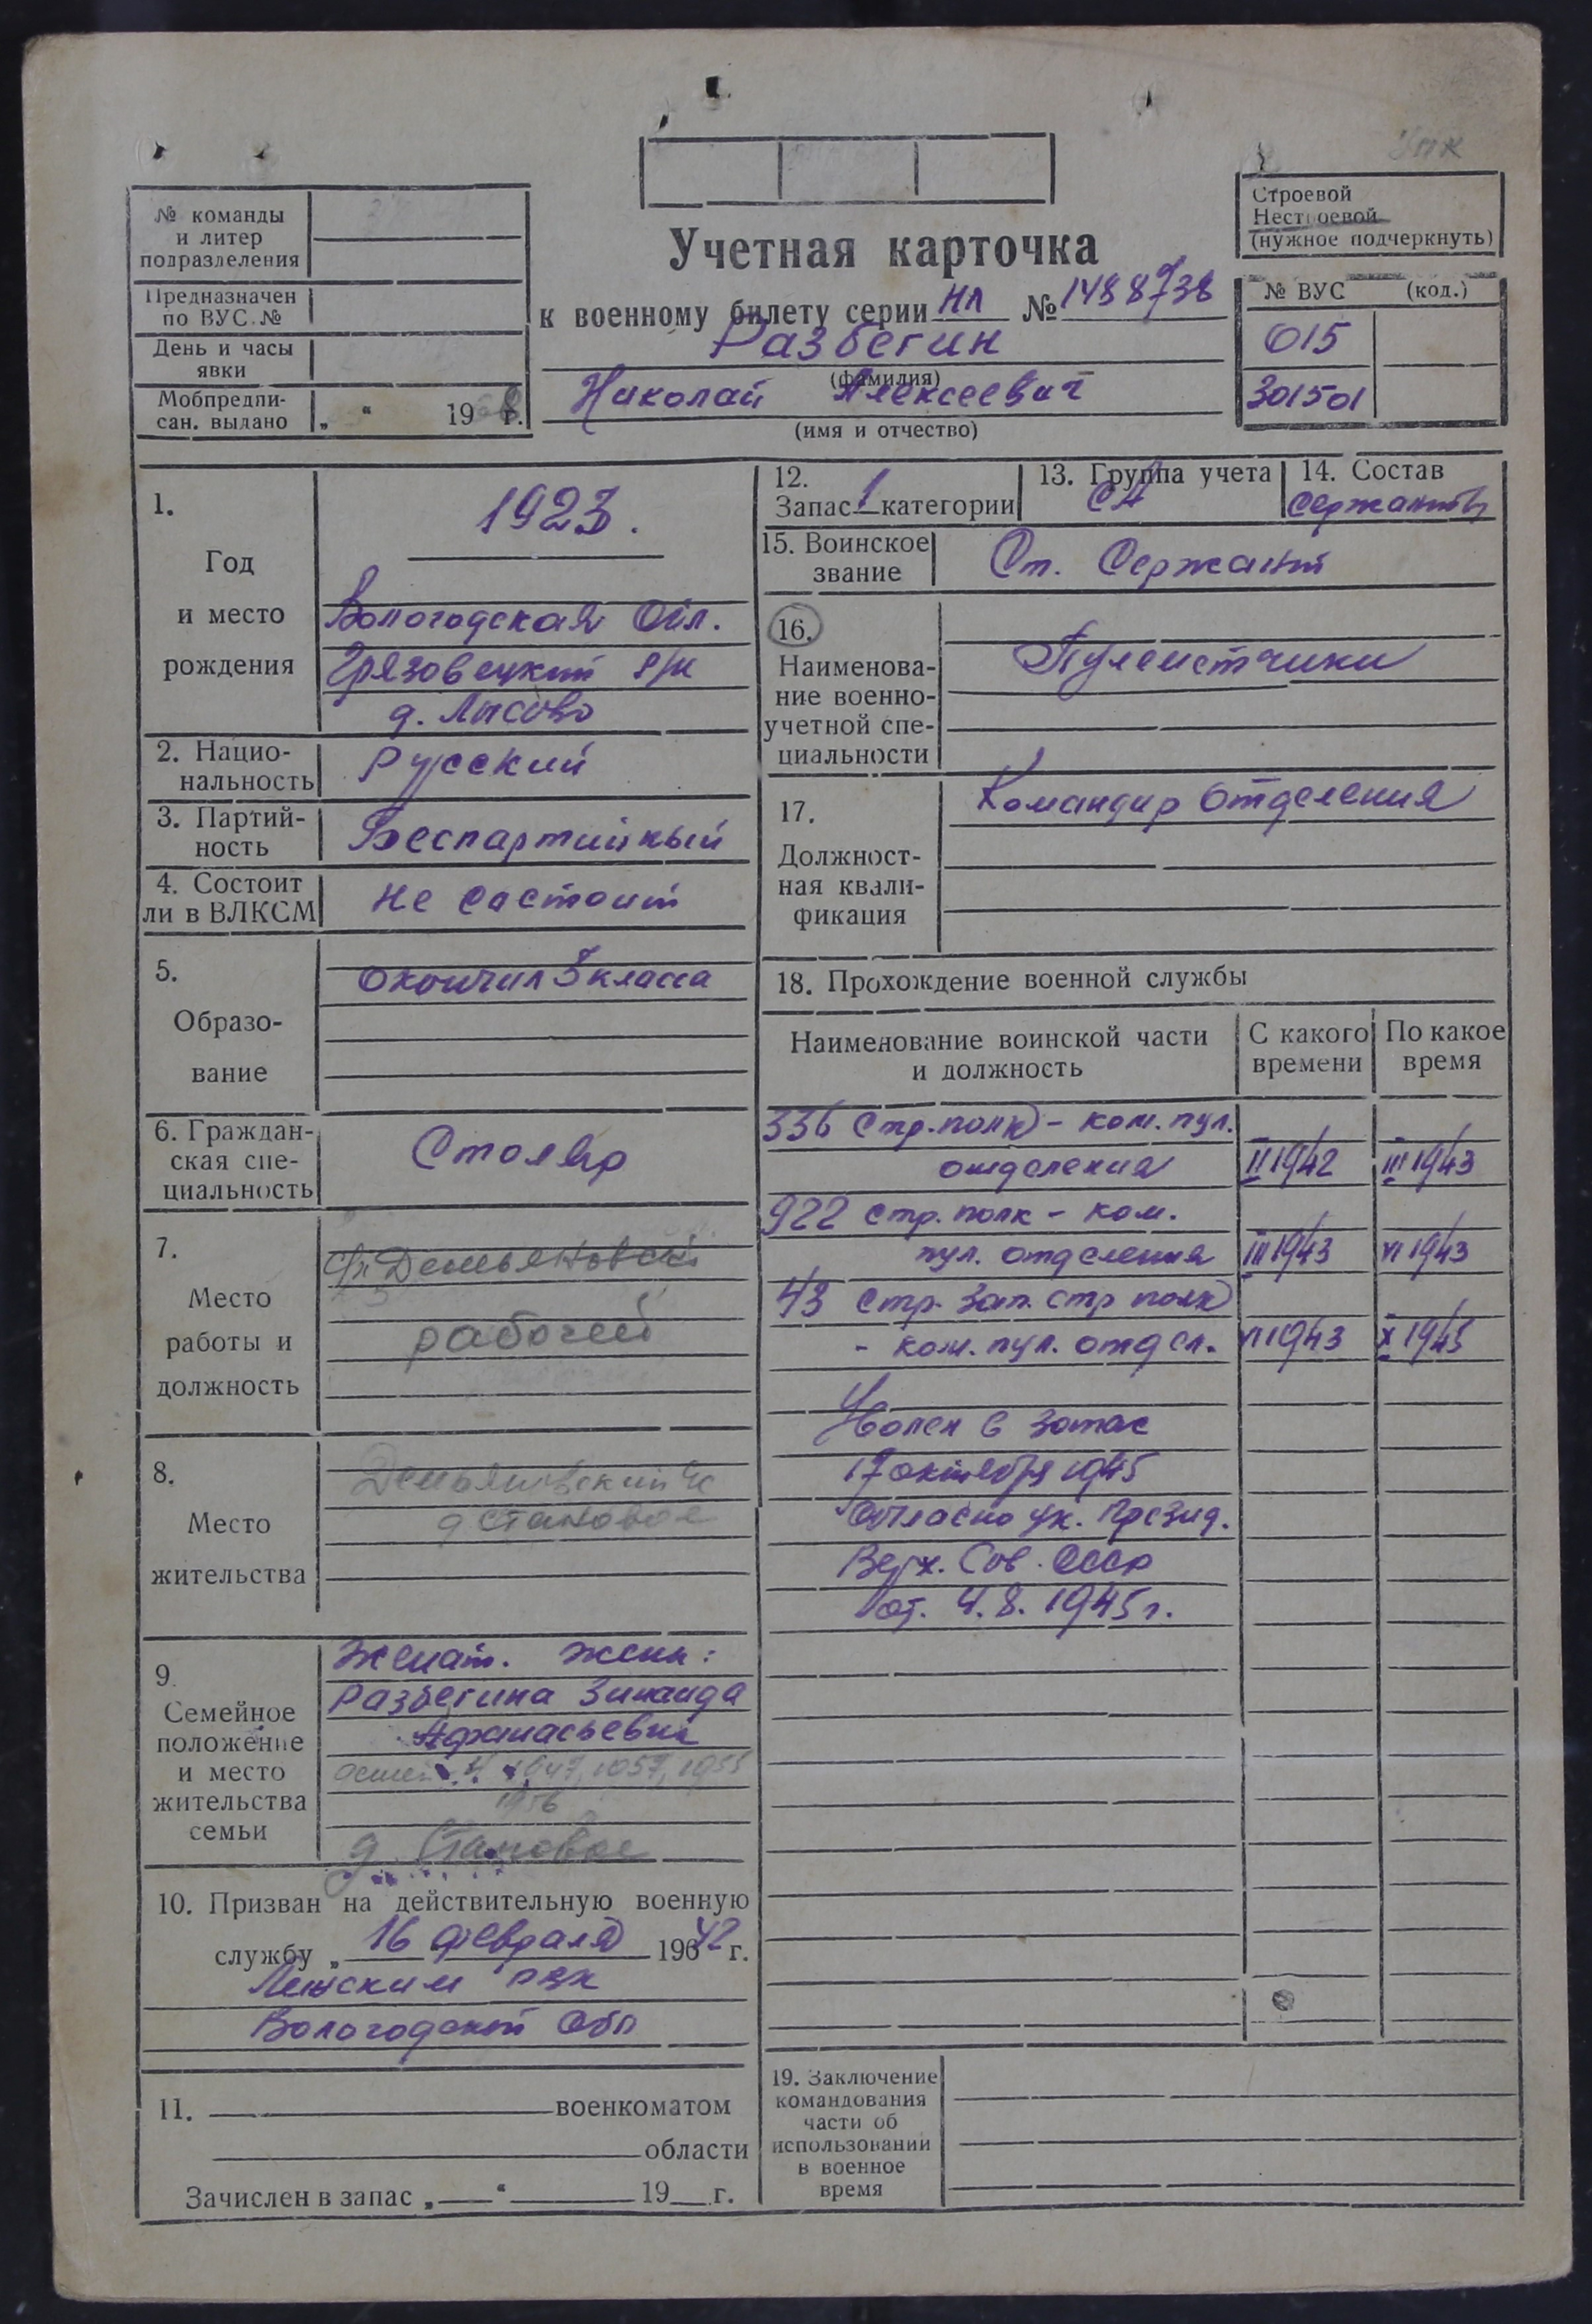 Упк
№ команды
и литер
подразделения
Предназначен
по ВУС.№
День и часы
явки
Мобпредпи-
сан. выдано „ “ 196 г.
Учетная карточка
к военному билету серии НЛ №
Разбегин
(фамилия)
Николай Алексеевич
(имя и отчество)
Строевой
Нестроевой
(нужное подчеркнуть)
№ ВУС (код.)
015
301501
1.
Год
и место
рождения
1923.
Вологодская Обл.
Грязовецкий р/н
д. Лысово
2. Нацио-
нальность
Русский
3. Партий-
ность
Беспартийный
4. Состоит
ли в ВЛКСМ
Не састоит
5.
Образо-
вание
Окончил класса
6. Граждан-
ская спе-
циальность
Столяр
7.
Место
работы и
должность
с/п Демьяновский
рабочий
8.
Место
жительства
Демьяновский с/с
д Становое
9.
Семейное
положение
и место
жительства
семьи
Женат. жена:
Разбегина Зинаида
Афанасьевна
1947, 1957, 1955
1956
д. Становое
10. Призван на действительную военную
службу „ 16 февраля 1942 г.
рвк
Вологодской Обл
11. военкоматом
области
Зачислен в запас „ “ 19 г.
12.
Запас 1 категории
13. Группа учета
СА
14. Состав
Сержантов
15. Воинское
звание
Ст. Сержант
16.
Наименова-
ние военно-
учетной спе-
циальности
Пулеметчики
17.
Должност-
ная квали-
фикация
Командир отделения
18. Прохождение военной службы
Наименование воинской части
и должность
С какого
времени
По какое
время
336 Стр. полк - ком. пул.
отделения II 1942 III 1943
922 стр. полк - ком.
пул. отделения III 1943 VI 1943
43 стр. зап. стр полк
- ком. пул. отдел. VI 1943 X 1945
Уволен в запас
17 октября 1945
Согласно ук. Презид.
Верх. Сов. СССР
от. 4.8. 1945 г.
19. Заключение
командования
части об
использовании
в военное
время